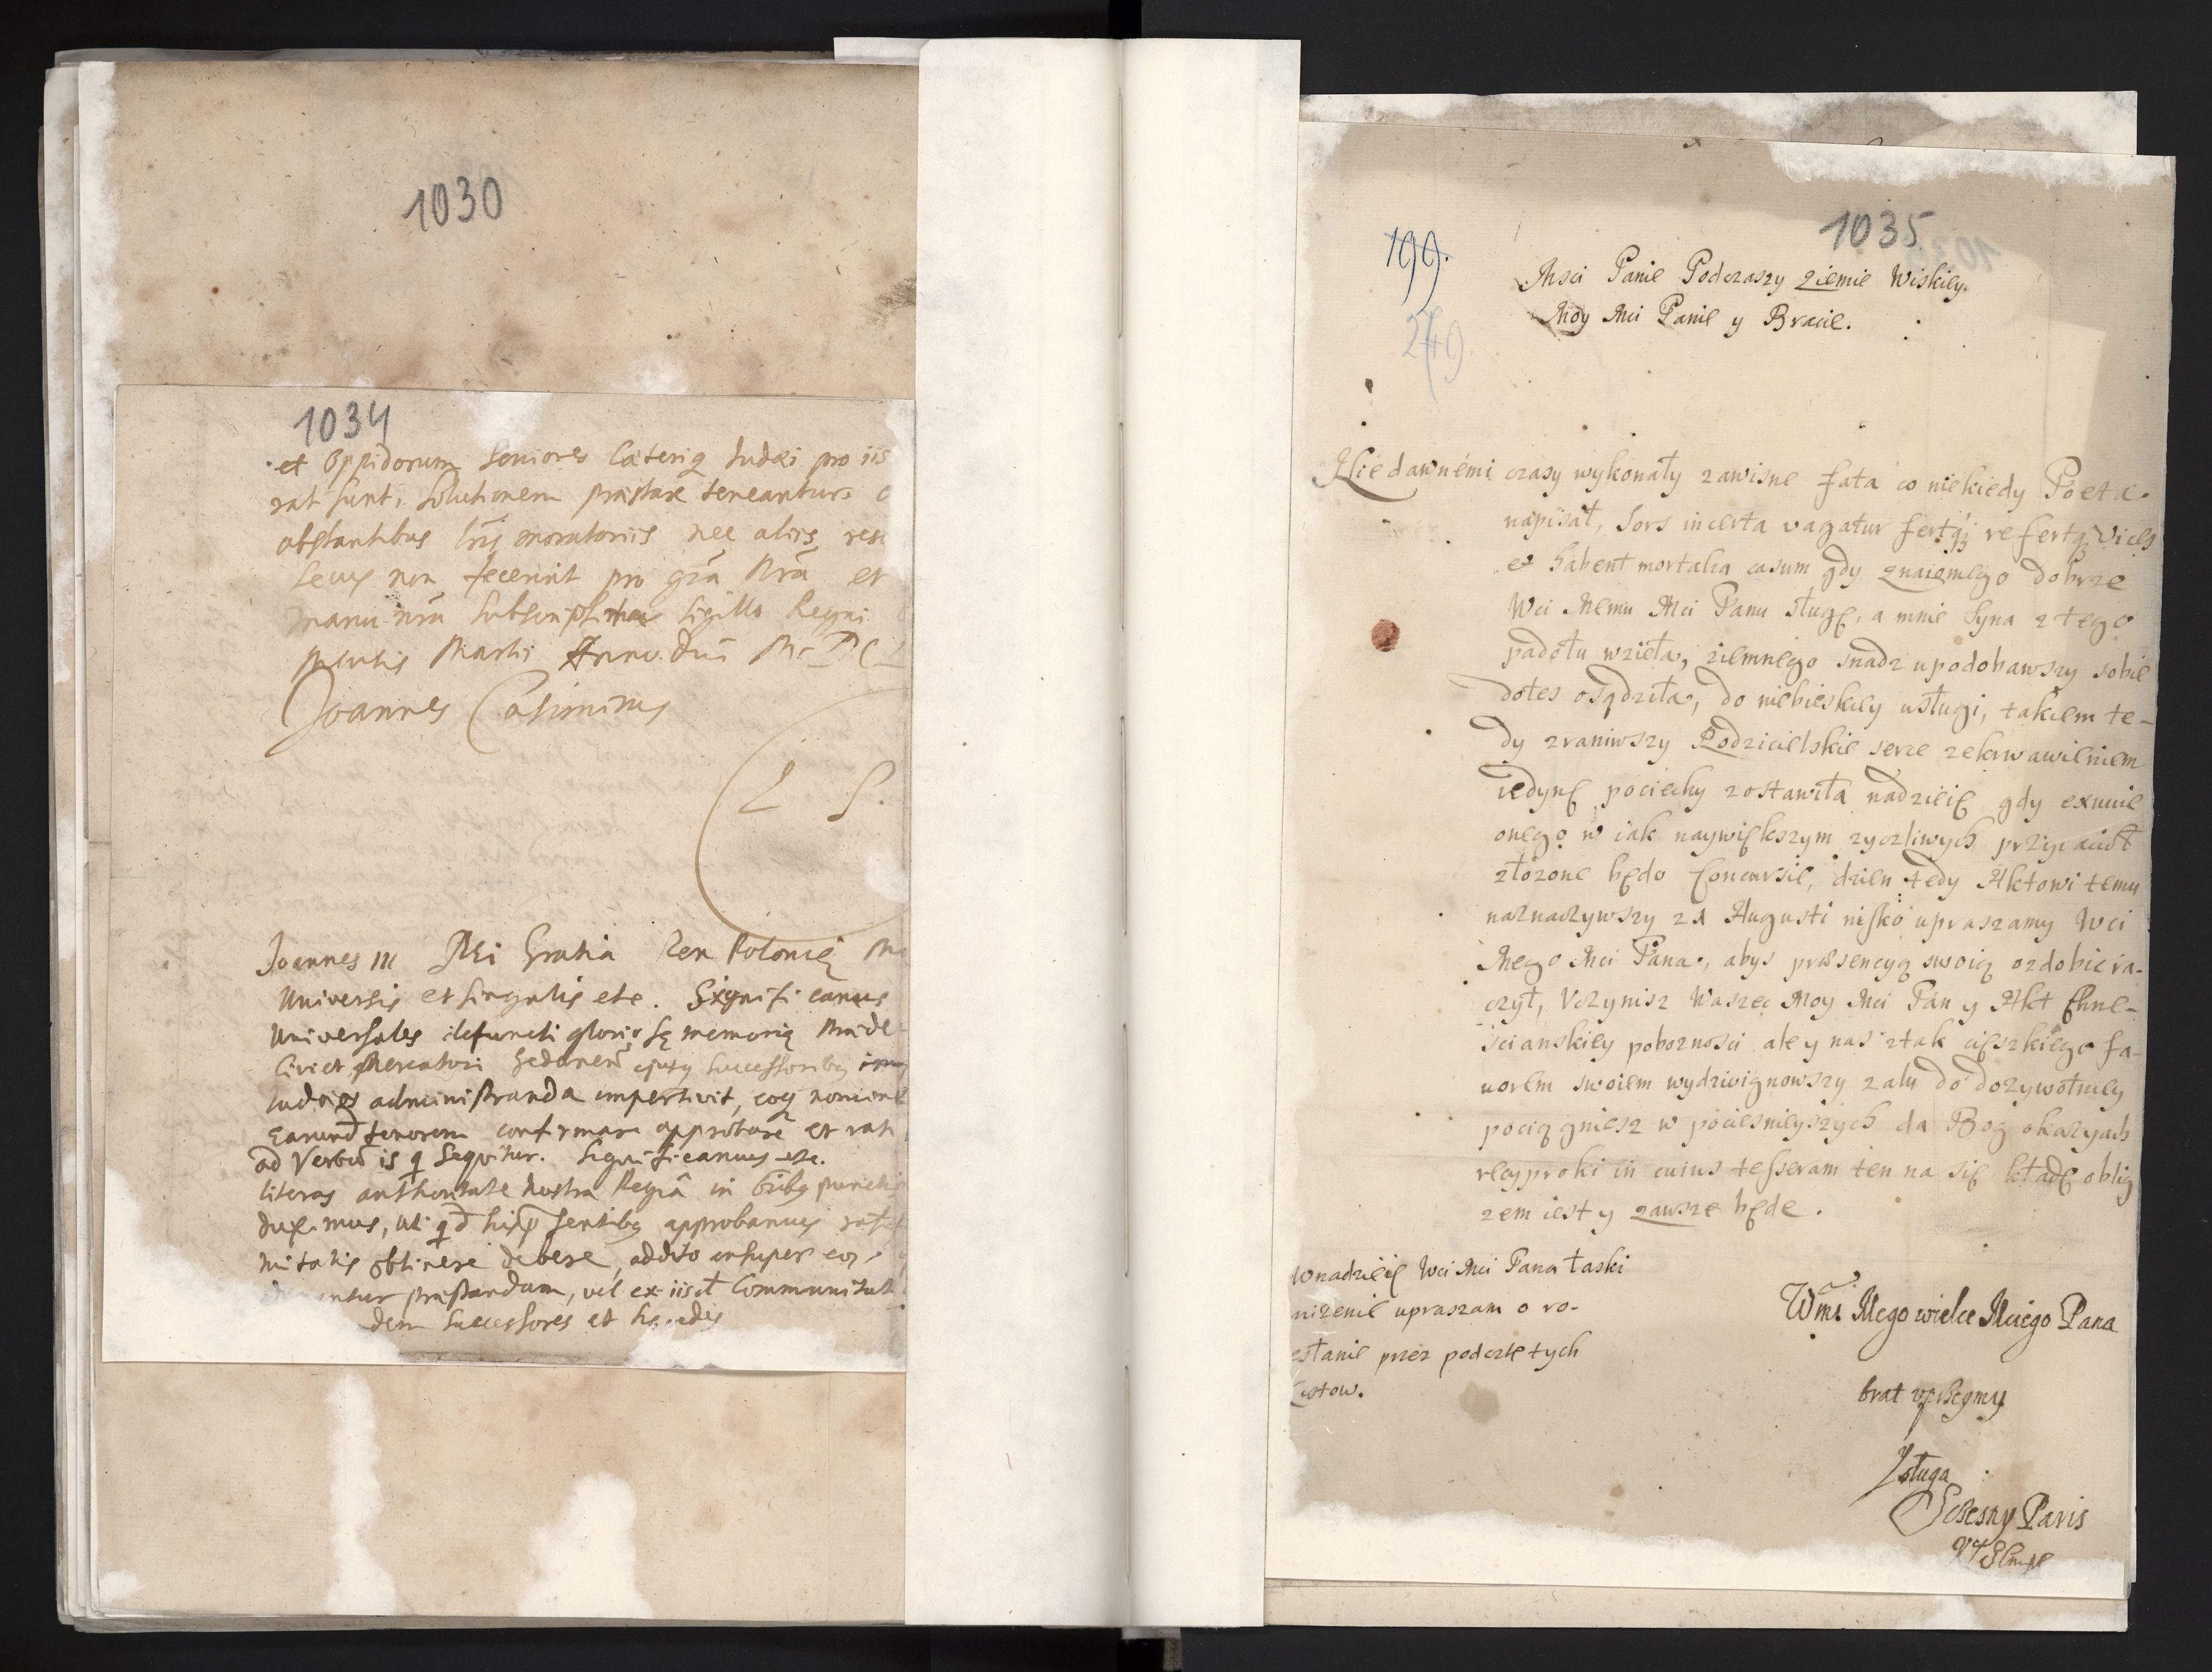 1030
1034
et Oppidorum Seniores Caeteriq Iudæi pro iis
rat sunt, Solutionem præstare teneantur
obstantibus lris moratoriis nec aliis
Secus non fecerint pro gra Nra et
manu nra Subscriptas Sigillo Regni
Mensis Martii Anno Dni M.DC
Joannes Casimirus
L S.
Joannes III Dei Gratia Rex Poloniæ
Universis et Singulis etc. Significamus
Universales defuncti gloriosę memorię
Civi et Mercatori Gedanen ejusq Successoribq
administranda impertivit, eoq nomine
Earund tenorem confirmare approbare et
ad Verbū is q Sequitur. Significamus etc.
literas authoritate Nostra Regiâ in
duximus, uti qd approbamus
obtinere debere, addito insuper
præstandam, vel ex iisd Communitat
Successores et
1035
199.
249.
Msci Panie Podczaszy Ziemie Wiskiey.
Moy Mci Panie y Bracie.
Niedawnémi czasy wykonały zawisne fata co niekiedy Poeta
napisał, Sors incerta vagatur fertq; refertq; vices
et habent mortalia casum gdy znaiemego dobrze
Wci Memu Mci Panu sługę, a mnie Syna z tego
padołu wzieła, ziemnego snadz upodobawszy sobie
dotes osądziła, do niebieskiey usługi, takiem te-
dy zraniwszy Rodzicielskie serce zekrwawieniem
iedynę pociechy zostawiła nadzieię gdy exuvie
onego w iak naywiększym zyczliwych przyiaciół
złozone będo Concursie, dzien tedy Aktowi temu
naznaczywszy 21 Augusti nisko upraszamy Wci
Mego Mci Pana, abys præsencyą swoią ozdobic ra-
czył, Vczynisz Waszeć Moy Mci Pan y Akt Chrze-
scianskiey poboznosci ale y nas ztak cięszkiego fa-
uorem swoiem wydzwignowszy zalu do dozywotniey
pociągniesz w pociesnieyszych da Bog okazyach
recyproki in cuius tesseram ten na się kładę oblig
zem iest y zawsze będe.
Wnadzieię Wci Mci Pana łaski
nizenie upraszam o ro-
esłanie przez podczetych
Listow.
Wmć Mego wielce Mciego Pana
brat vprzeymy
y sługa
Sczesny Paris